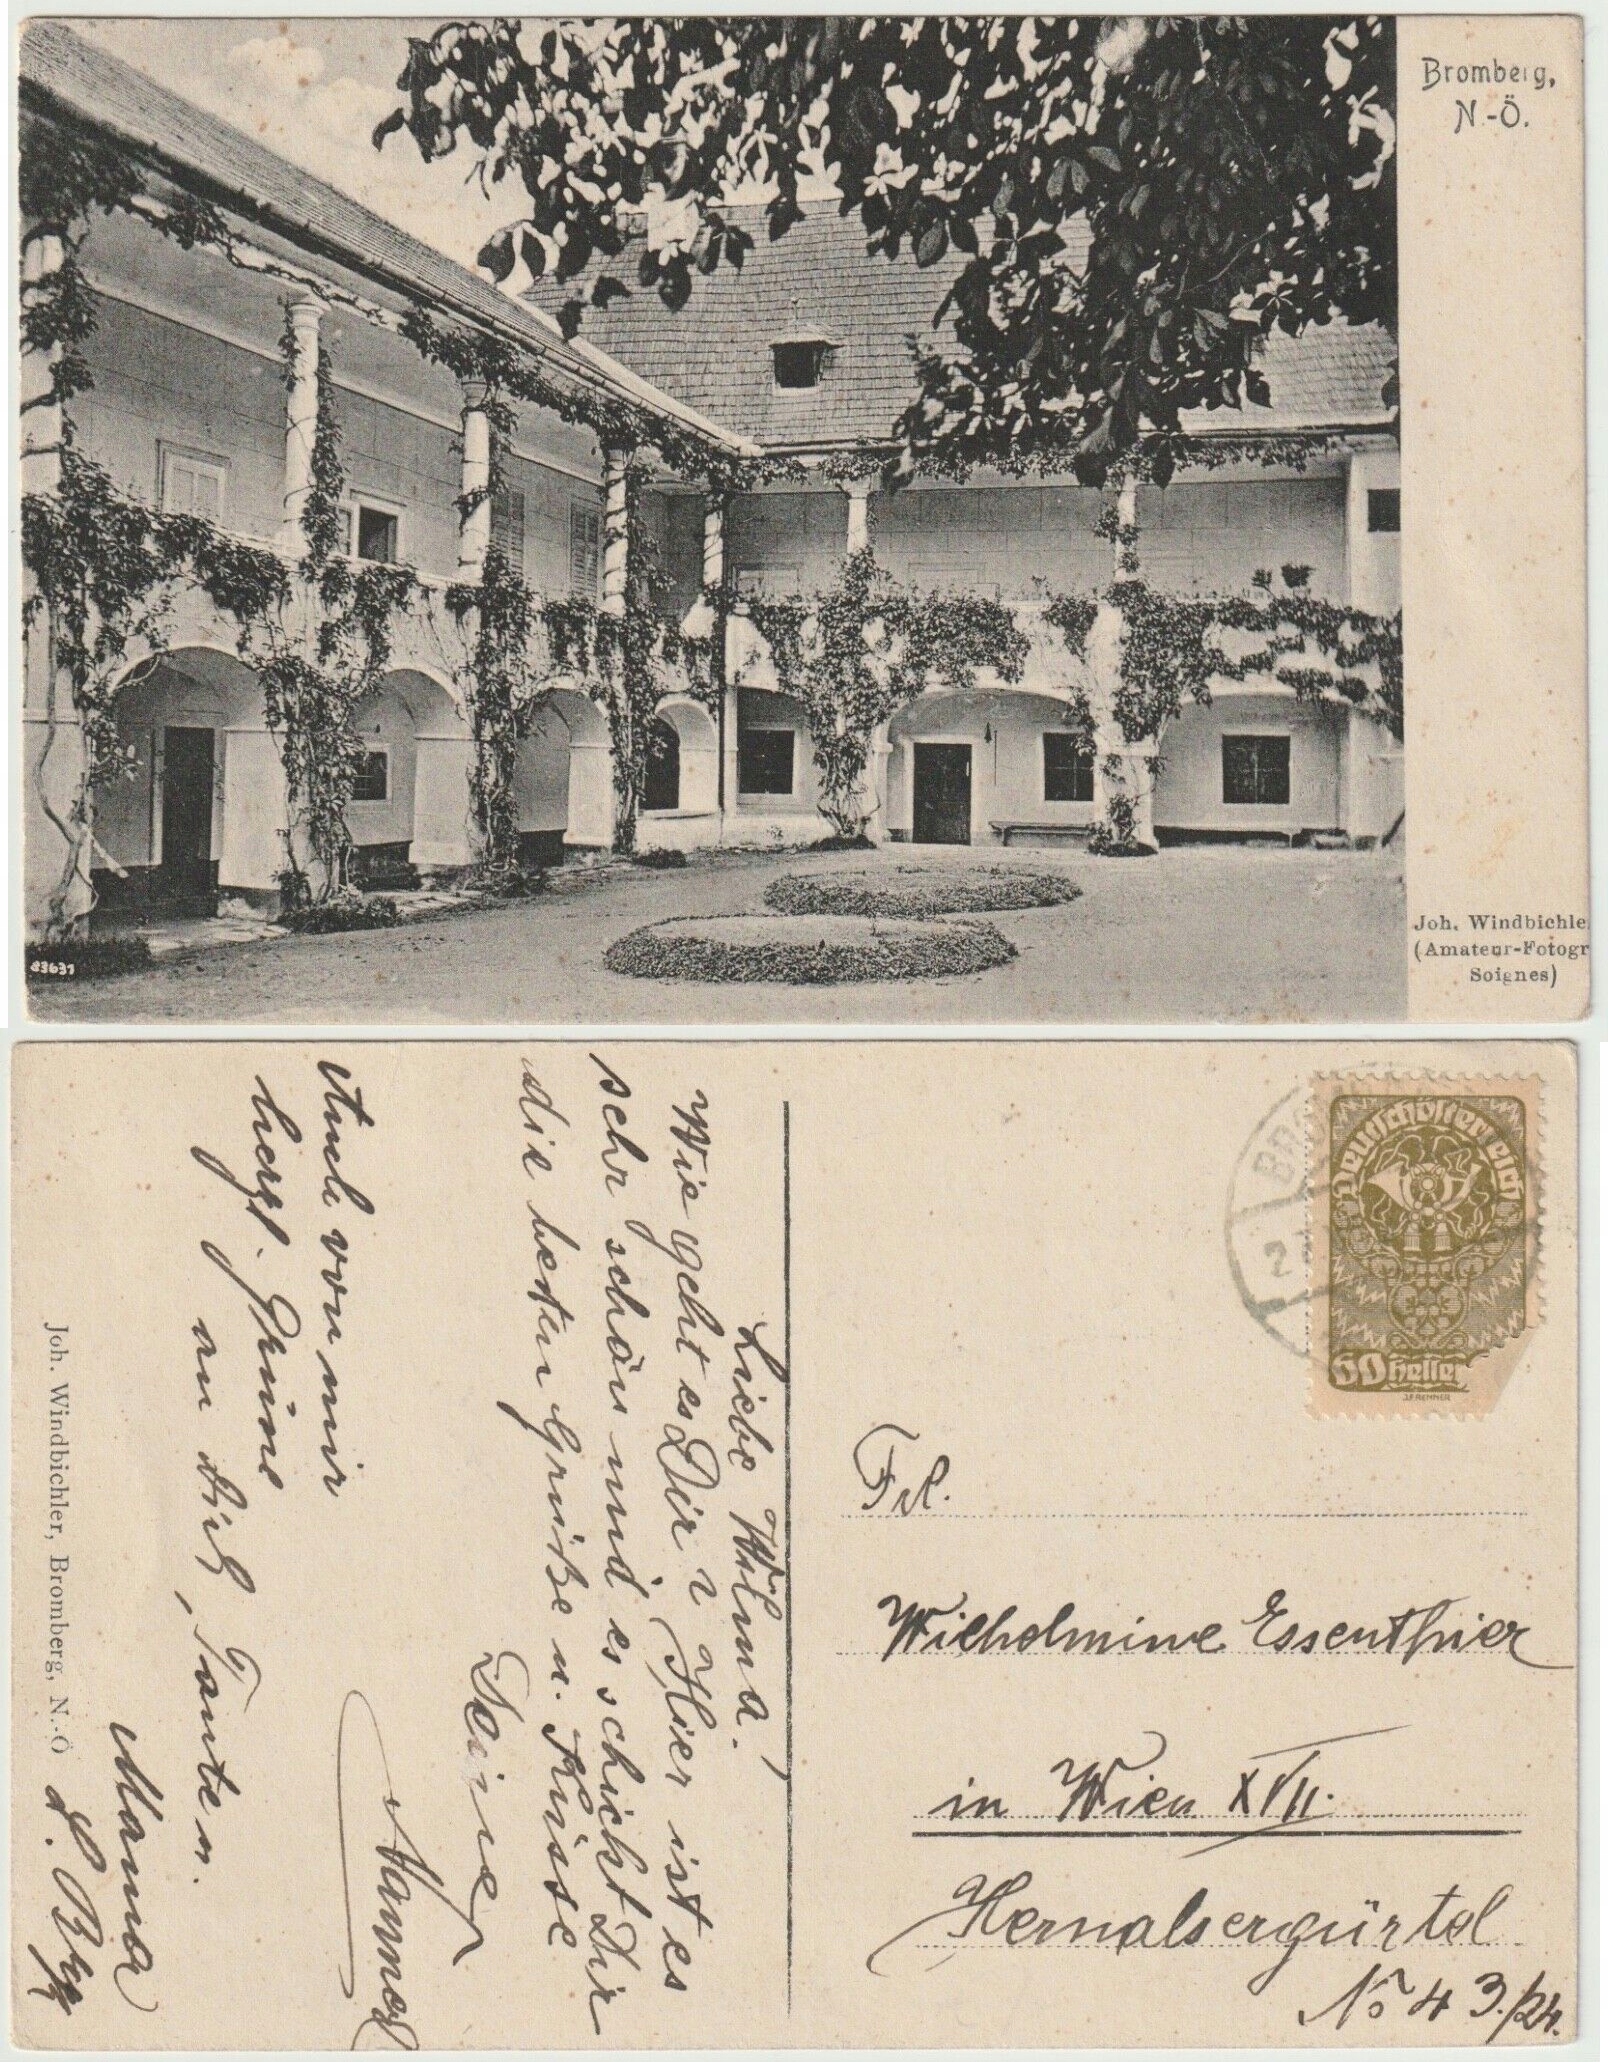 Bromberg,
N.-Ö.
Joh. Windbichle
(Amateur-Fotogr
Soignes)
83637
Liebe Wilma!
Wie geht es Dir? Hier ist es
sehr schön und es schickt Dir
die besten Grüße u. Küsse
Deine
Auch von mir
herzl. Grüsse
an Dich, Tanten.
Mama
Joh. Windbichler, Bromberg, N.-Ö
Deutschösterreich
60 Heller
J.F. RENNER
BRO
2
Frl.
Wilhelmine Essenthier
in Wien XVII.
Hernalsergürtel
No 43./24.